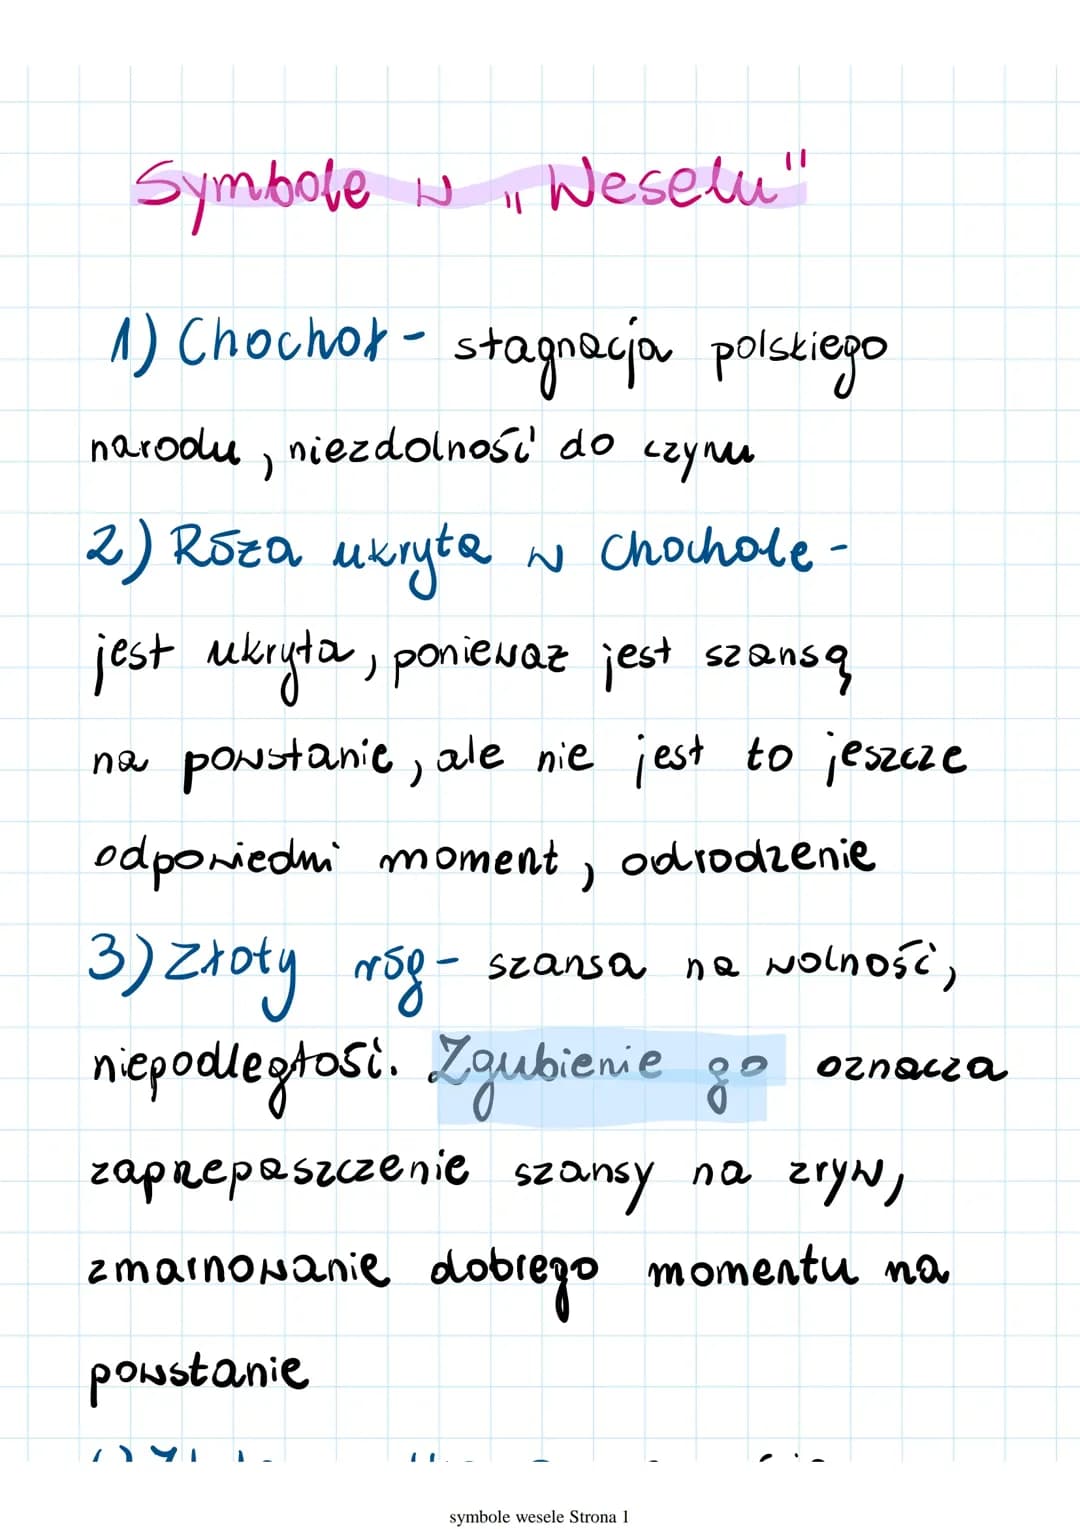 Symbole w „Weselu"
1) Chochoł - stagnacja polskiego
narodu, niezdolność do czynu
2) Róża ukryta w Chochole -
jest ukryta, ponieważ jest szansą
na powstanie, ale nie jest to jeszcze
odpowiedni moment, odrodzenie
3) Złoty róg - szansa na wolność,
niepodległość. Zgubienie go oznacza
zaprzepaszczenie szansy na zryw,
zmarnowanie dobrego momentu na
powstanie
symbole wesele Strona 1